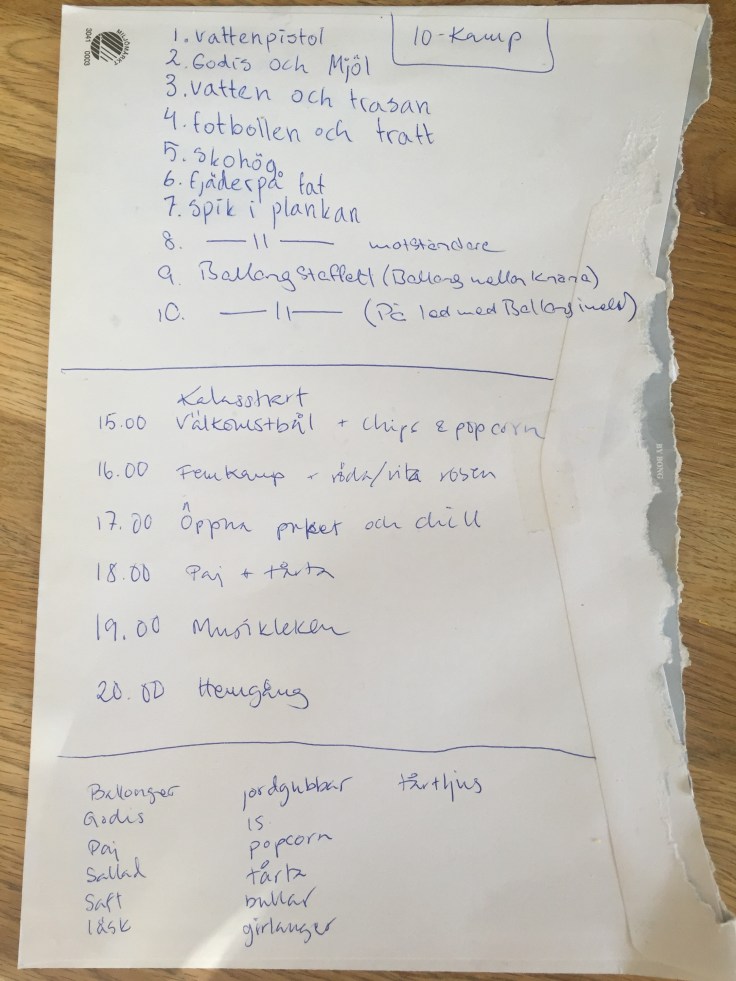 10-Kamp
1. Vattenpistol
2. Godis och Mjöl
3. vatten och trasan
4. fotbollen och tratt
5. Skohög
6. fjäder på fat
7. Spik i plankan
8. —— 11 —— motståndare
9. Ballongstaffett (Ballong mellan knäna)
10. —— 11 —— (På led med Ballong
Kalasstart
15.00 Välkomstbål + chips & popcorn
16.00 Femkamp - röda/vita rosen
17.00 Öppna paket och chill
18.00 Paj + tårta
19.00 Musikleken
20.00 Hemgång
Ballonger jordgubbar tårtljus
Godis is
Paj popcorn
Sallad tårta
Saft bullar
läsk girlanger
3041 0003
BY BONG